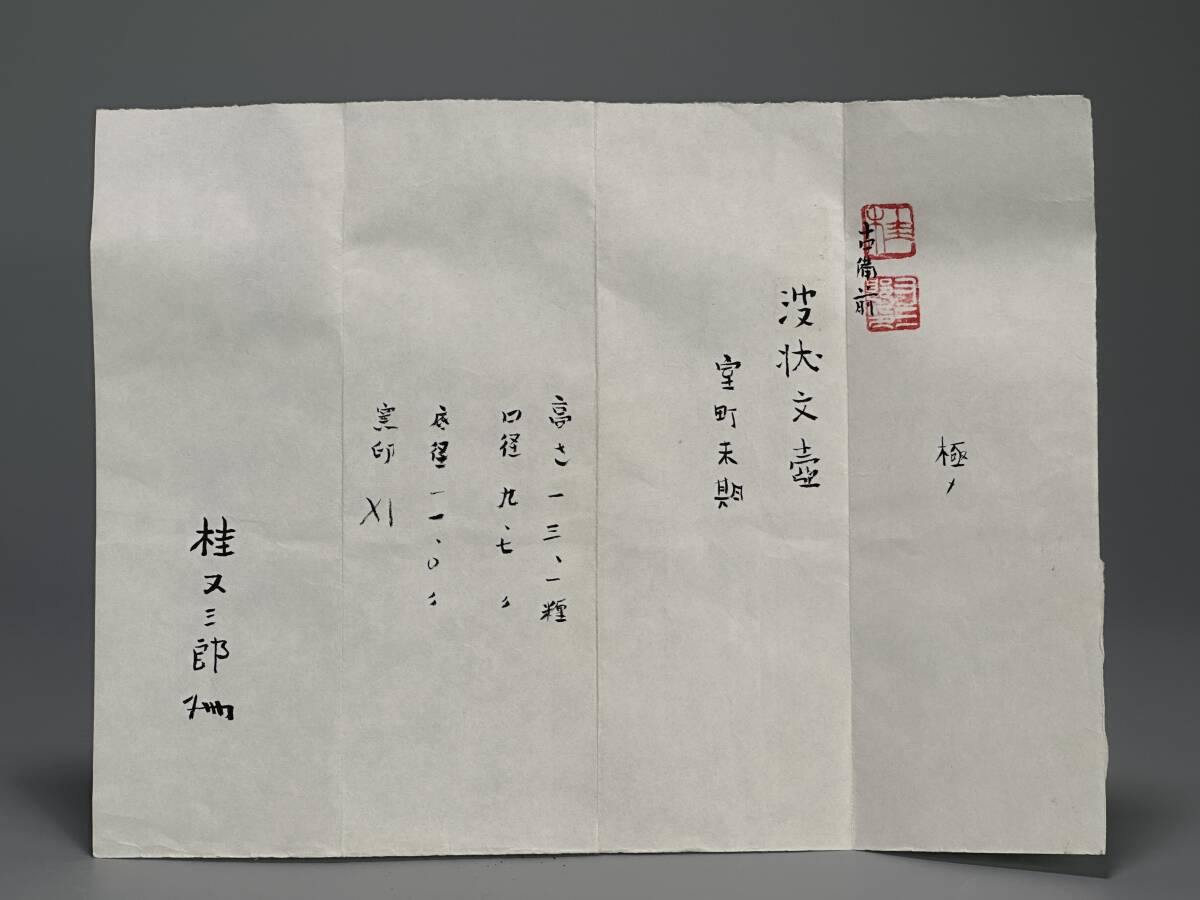 極メ
古備前
波状文壺
室町末期
高さ 一三、一糎
口径 九、七〃
底径 一一、〇〃
窯印 XI
桂又三郎